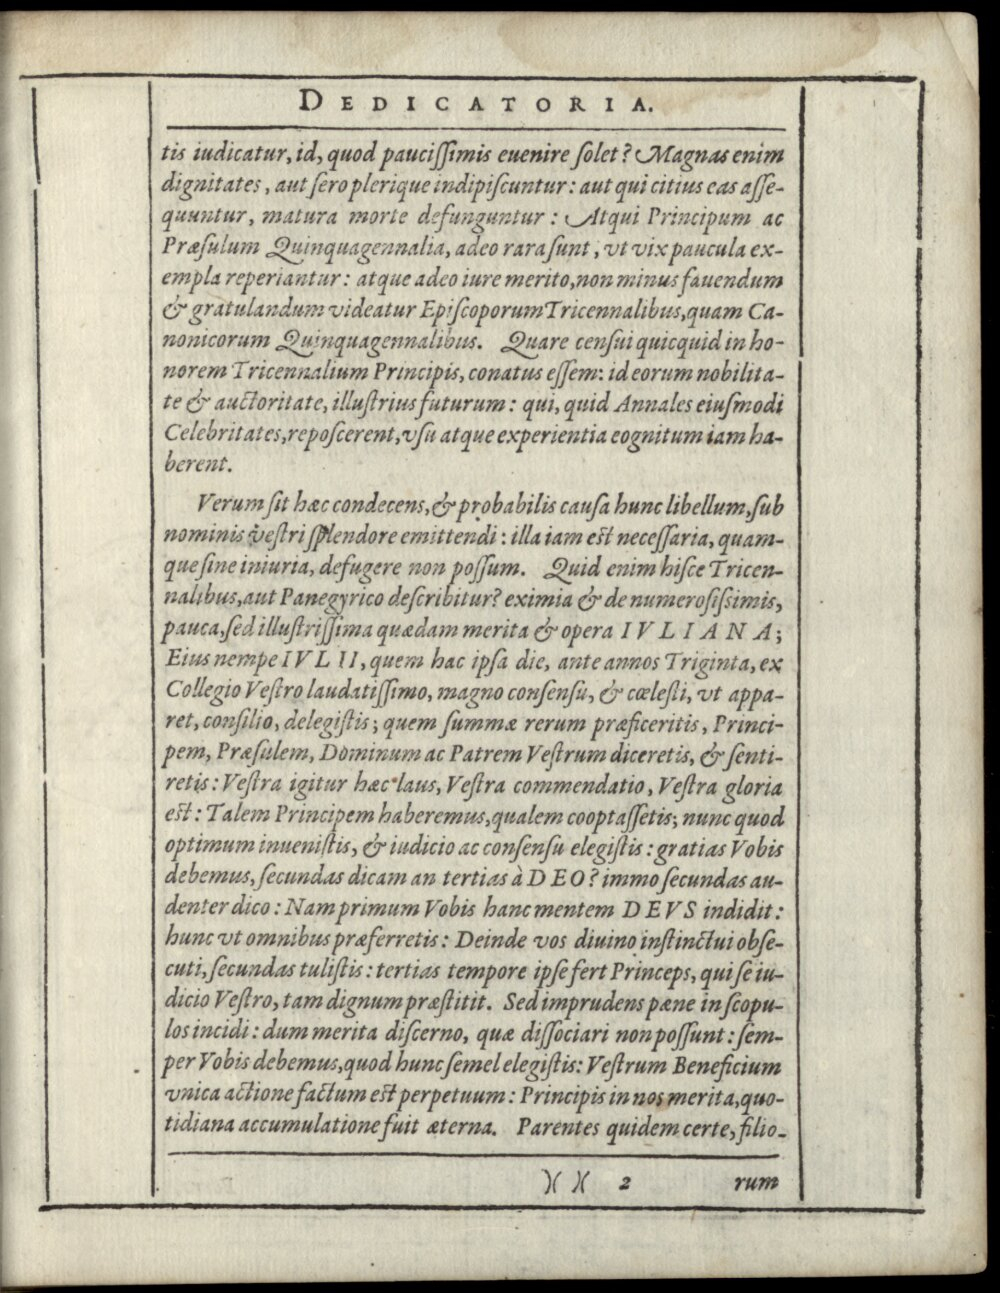 DEDICATORIA.
tis iudicatur, id, quod pauciſſimis euenire ſolet? Magnas enim
dignitates, aut ſero plerique indipiſcuntur: aut qui citius eas aſſe-
quuntur, matura morte defunguntur: Atqui Principum ac
Præſulum Quinquagennalia, adeo rara ſunt, vt vix paucula ex-
empla reperiantur: atque adeo iure merito, non minus fauendum
& gratulandum videatur Epiſcoporum Tricennalibus, quam Ca-
nonicorum Quinquagennalibus. Quare cenſui quicquid in ho-
norem Tricennalium Principis, conatus eſſem: id eorum nobilita-
te & auctoritate, illuſtrius futurum: qui, quid Annales eiuſmodi
Celebritates, repoſcerent, vſu atque experientia eognitum iam ha-
berent.
Verum ſit hæc condecens, & probabilis cauſa hunc libellum, ſub
nominis veſtri ſplendore emittendi: illa iam eſt neceſſaria, quam-
que ſine iniuria, defugere non poſſum. Quid enim hiſce Tricen-
nalibus, aut Panegyrico deſcribitur? eximia & de numeroſiſsimis,
pauca, ſed illuſtriſſima quædam merita & opera IVLIANA;
Eius nempe IVLII, quem hac ipſa die, ante annos Triginta, ex
Collegio Veſtro laudatiſſimo, magno conſenſu, & cœleſti, vt appa-
ret, conſilio, delegiſtis; quem ſummæ rerum præficeritis, Princi-
pem, Præſulem, Dominum ac Patrem Veſtrum diceretis, & ſenti-
retis: Veſtra igitur hæc laus, Veſtra commendatio, Veſtra gloria
eſt: Talem Principem haberemus, qualem cooptaſſetis; nunc quod
optimum inueniſtis, & iudicio ac conſenſu elegiſtis: gratias Vobis
debemus, ſecundas dicam an tertias à DEO? immo ſecundas au-
denter dico: Nam primum Vobis hanc mentem DEVS indidit:
hunc vt omnibus præferretis: Deinde vos diuino inſtinctui obſe-
cuti, ſecundas tuliſtis: tertias tempore ipſe fert Princeps, qui ſe iu-
dicio Veſtro, tam dignum præſtitit. Sed imprudens pæne in ſcopu-
los incidi: dum merita diſcerno, quæ diſſociari non poſſunt: ſem-
per Vobis debemus, quod hunc ſemel elegiſtis: Veſtrum Beneficium
vnica actione factum eſt perpetuum: Principis in nos merita, quo-
tidiana accumulatione fuit æterna. Parentes quidem certe, filio-
)( )( 2 rum